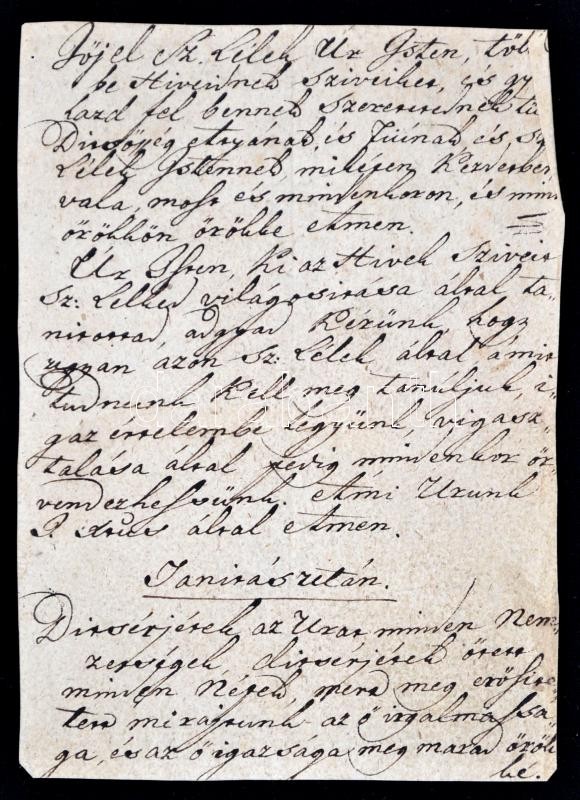 Jőjel Sz. Lélek Ur Isten, töl
be Hiveidnek sziveiket, és gy
lazd fel bennek szeretetednek tü
Ditsőség Atyánab, és Fiúnak és sz
Lélek Istennek, miképen Kezdetben
vala, most és mindenkoron, és mind
örökkön örökke Amen.
Ur Isten, Ki az Hivek sziveit
sz: Lelked világositása által ta„
nitottad, adgyad Kérünk, hogy
ugyan azon sz: Lélek által ámit
tudnunk Kell meg tanúljuk, i„
gaz értelembe légyünk, vigasz„
talása által pedig mindenkor ör„
vendezhessünk. A mi Urunk
J. Xtus által Amen.
Tanitás után.
Ditsérjétek az Urat minden Nem„
zetségek, ditsérjétek őtett
minden Népek, mert meg erősite„
tett mi rajtunk az ő irgalmassá„
ga, és az ő igazsága meg marad örök
ké.